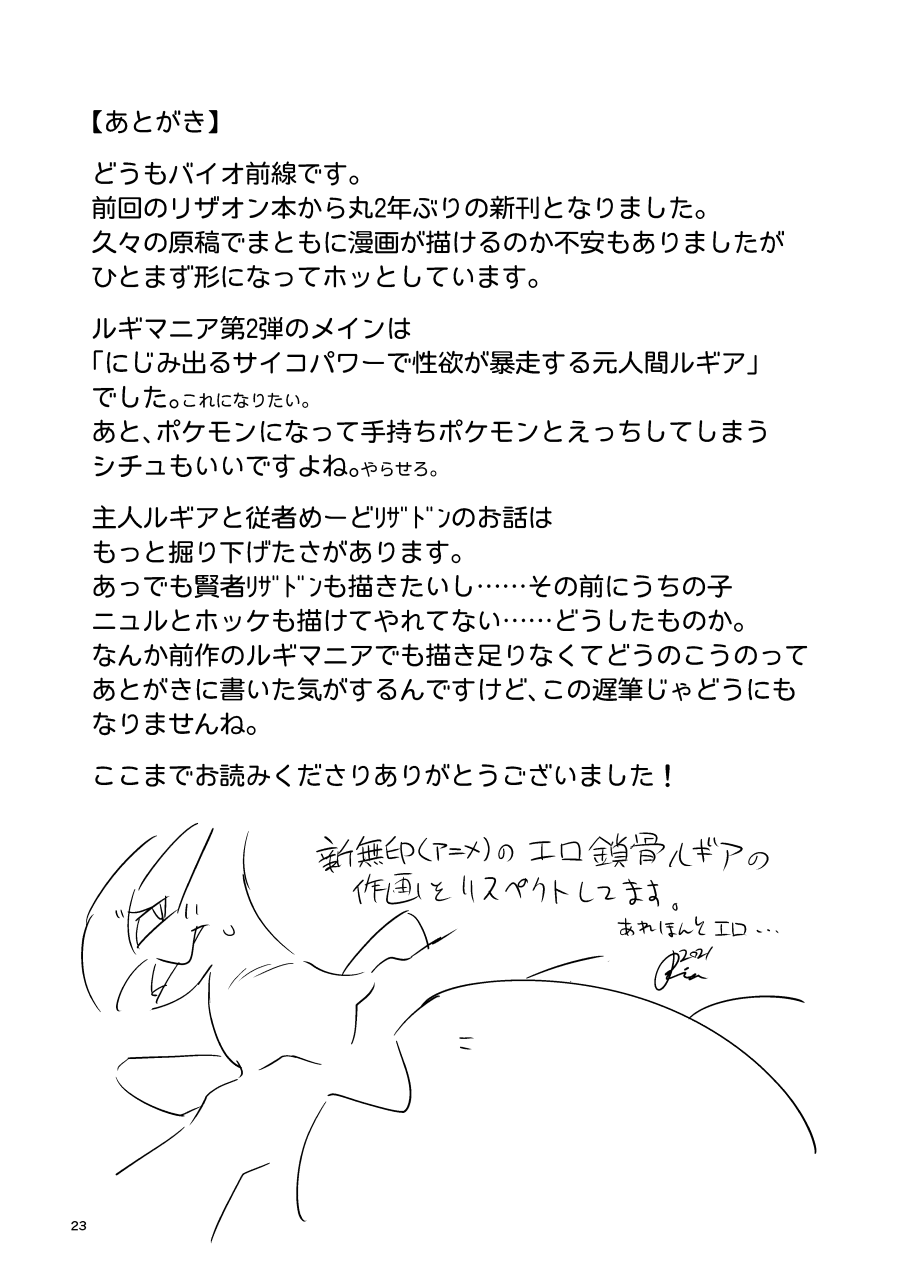 【あとがき】
どうもバイオ前線です。
前回のリザオン本から丸2年ぶりの新刊となりました。
久々の原稿でまともに漫画が描けるのか不安もありましたが
ひとまず形になってホッとしています。
ルギマニア第2弾のメインは
「にじみ出るサイコパワーで性欲が暴走する元人間ルギア」
でした。これになりたい。
あと、ポケモンになって手持ちポケモンとえっちしてしまう
シチュもいいですよね。やらせろ。
主人ルギアと従者めーどﾘｻﾞﾄﾞﾝのお話は
もっと掘り下げたさがあります。
あっでも賢者ﾘｻﾞﾄﾞﾝも描きたいし……その前にうちの子
ニュルとホッケも描けてやれてない……どうしたものか。
なんか前作のルギマニアでも描き足りなくてどうのこうのって
あとがきに書いた気がするんですけど、この遅筆じゃどうにも
なりませんね。
ここまでお読みくださりありがとうございました！
新無印(アニメ)のエロ鎖骨ルギアの
作画をリスペクトしてます。
あれほんとエロ...
2021
23